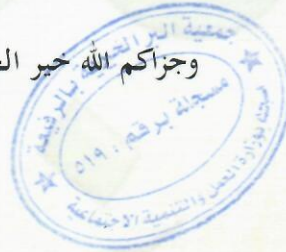 وجزاكم الله خير
جمعية البر الخيرية بالرفيعة
مسجلة برقم : ٥١٩
مسجلة بوزارة العمل والتنمية الاجتماعية